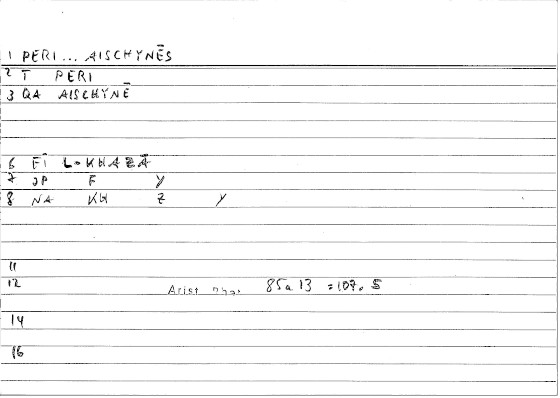 1 PERI... AISCHYNĒS
2 T PERI
3 QA AISCHYNĒ
6 FĪ L-KHAZĀ
7 JP F Y
8 NA KH Z Y
11
12 Arist 85a 13 = 107.5
14
16